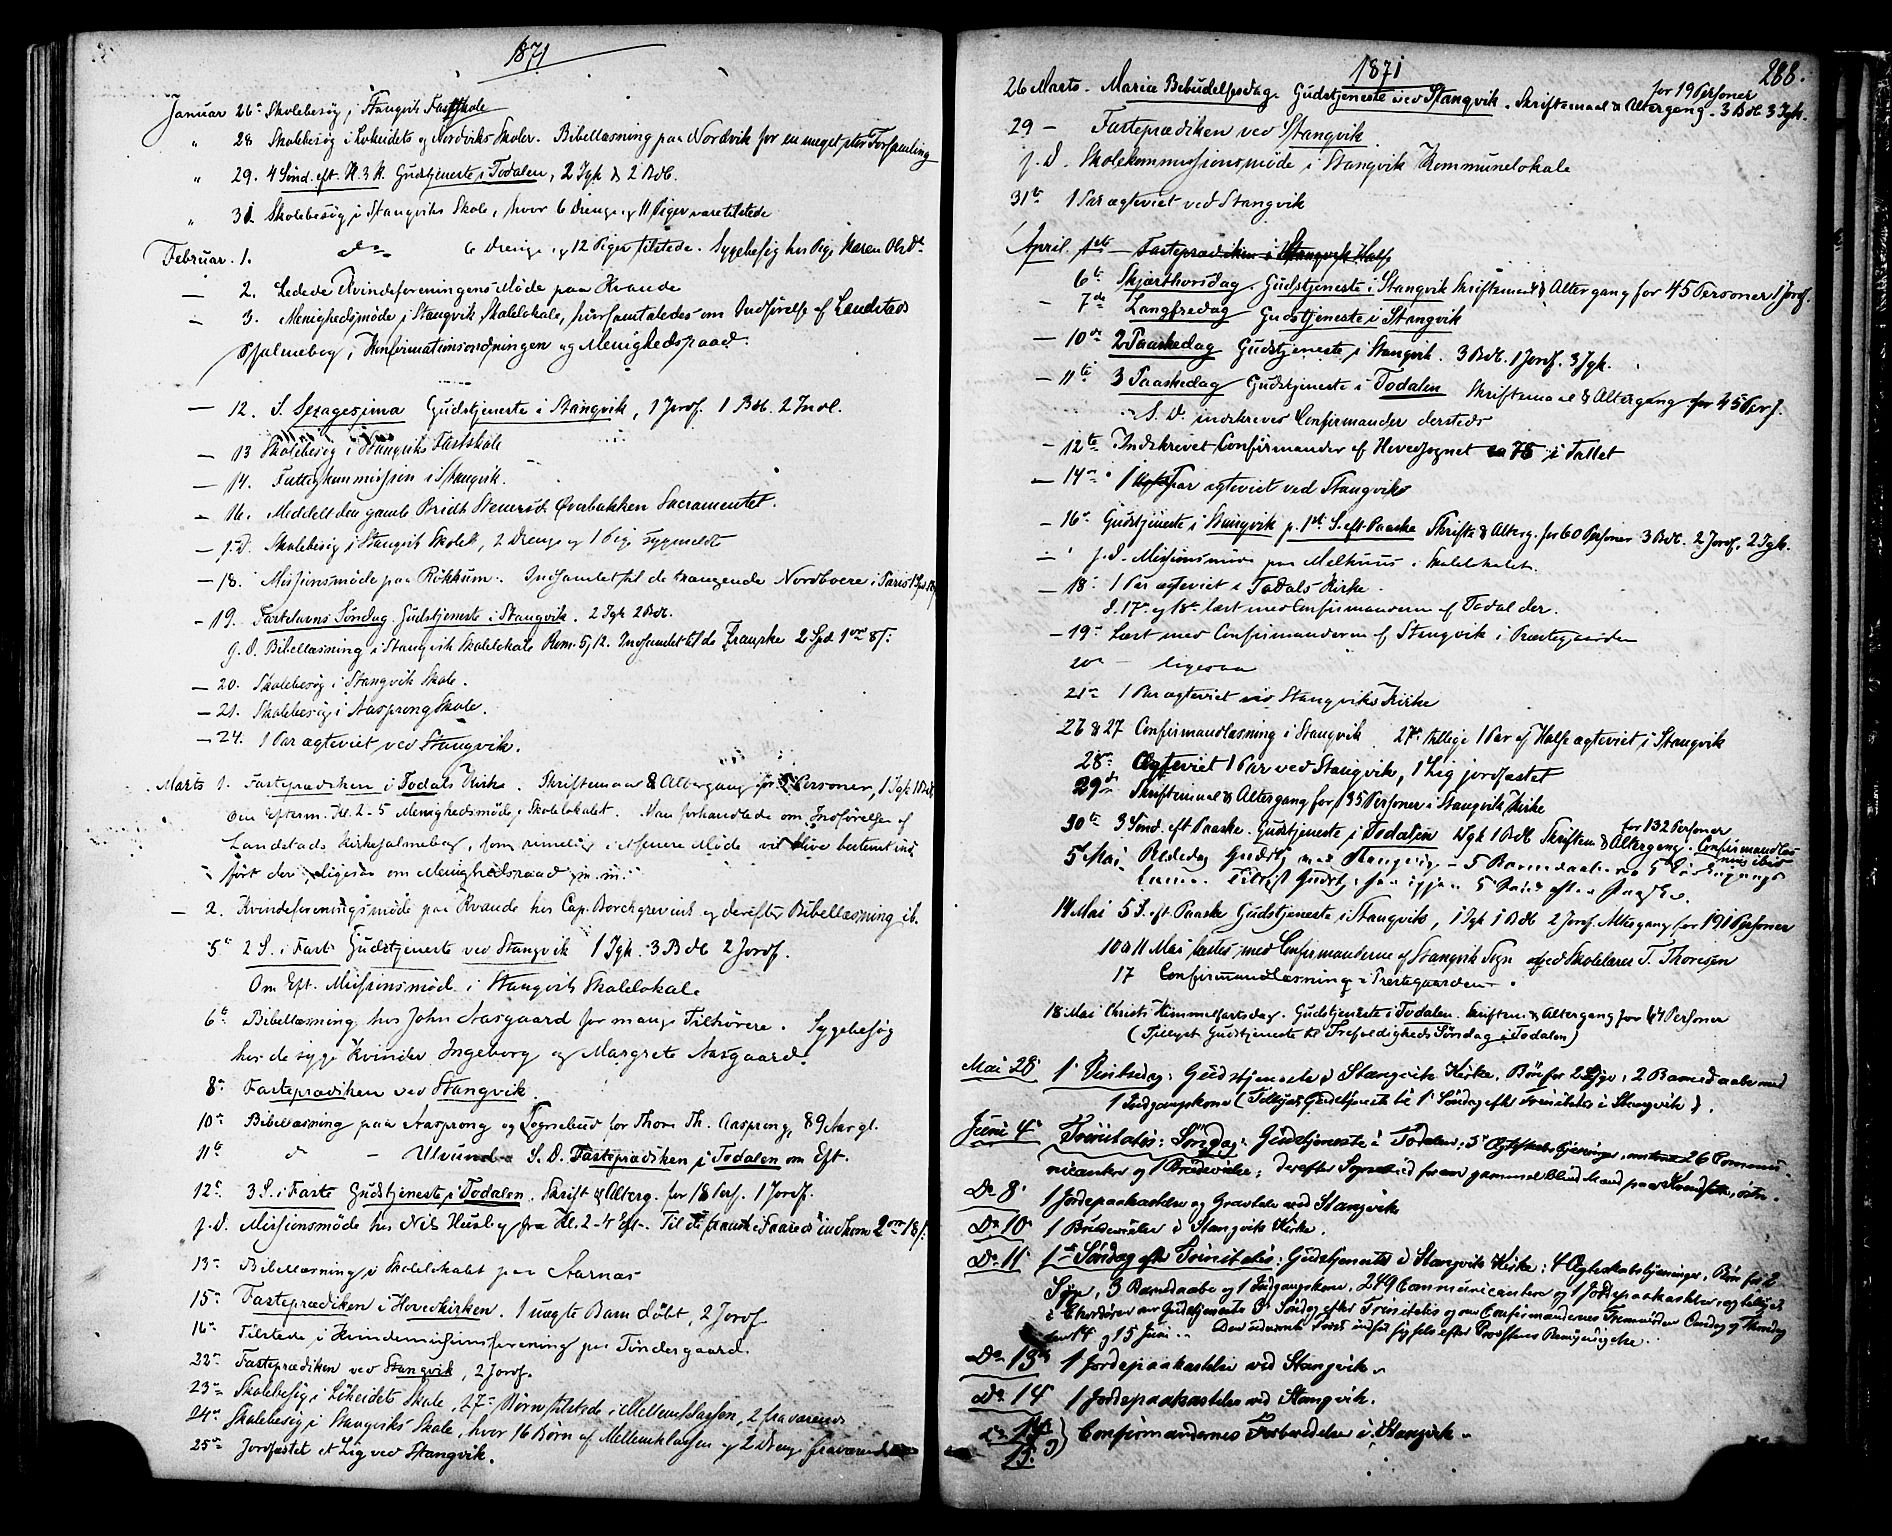 1871
Januar 26de Skolebesøg i Stangviks Fastskole
" 28 Skolebesøg i Løkeidets og Nordviks Skoler. Bibellæsning paa Nordvik for en meget stor Forsamling
" 29. 4 Sønd. eft. H. 3 K. Gudstjeneste i Todalen, 2 Igk & 2 Bdb.
" 31 Skolebesøg i Stangviks Skole, hvor 6 Drenge og 11 Piger vare tilstede
Februar. 1. do 6 Drenge og 12 Piger tilstede. Sygebesøg hos Pige Karen Olsdt.
— 2. Ledede Kvindeforeningens Møde paa Kvande
— 3. Menighedsmøde i Stangvik Skolelokale, hvor samtaledes om Indførelse af Landstads
Psalmebog, Konfirmationsordningen og Menighedsraad.
— 12. S. Sexagesima Gudstjeneste i Stangvik, 1 Jordf. 1 Bdb. 2 Indl.
— 13 Skolebesøg i Stangviks Fastskole
— 14. Fattigkommission i Stangvik.
— 16. Meddelt den gamle Bridt Steinersdt. Øverbakken Sacramentet.
— s. D. Skolebesøg i Stangvik Skole, 2 Drenge og 1 Pige sygmeldt
— 18. Missionsmøde paa Røkkum. Indsamlet til de trængende Nordboere i Paris
— 19. Fastelavns Søndag Gudstjeneste i Stangvik. 2 Igk 2 Bdb.
s. D. Bibellæsning i Stangvik Skolelokale Rom. 5, 12. Indsamlet til de Franske 2 Spd 1 ort 8 s.
— 20. Skolebesøg i Stangvik Skole.
— 21. Skolebesøg i Aasprong Skole.
— 24. 1 Par ægteviet ved Stangvik.
Marts 1. Fasteprædiken i Todals Kirke. Skriftemaal & Altergang for Personer, 1 Igk 1 Bdb
Om Efterm. Kl. 2-5 Menighedsmøde i Skolelokalet. Man forhandlede om Indførelse af
Landstads Kirkepsalmebog, som rimelig i et senere Møde vil blive bestemt ind-
ført der, ligesaa om Menighedsraad m. m.
— 2. Kvindeforeningsmøde paa Kvande hos Cap. Borchgrevink og derefter Bibellæsning ib.
5te 2 S. i Faste Gudstjeneste ved Stangvik 1 Igk. 3 Bdb 2 Jordf.
Om Eft. Missionsmøde i Stangvik Skolelokale
6te Bibellæsning hos John Aasgaard for mange Tilhørere. Sygebesøg
hos de syge Kvinder Ingeborg og Margrete Aasgaard.
8de Fasteprædiken ved Stangvik.
10de Bibellæsning paa Aasprong og Sognebud for Thore Th. Aasprong, 89 Aar gl.
11te do — Ulvund S. D. Fasteprædiken i Todalen om Eft.
12te 3 S. i Faste Gudstjeneste i Todalen. Skrift & Alterg. for 18 Pers. 1 Jordf.
s. D. Missionsmøde hos Nils Husby fra Kl. 2-4 Eft. Til de franske Faarede indkom 2 ort 18 s.
13de Bibellæsning i Skolelokalet paa Aarnes
15de Fasteprædiken i Hovedkirken. 1 uægte Barn døbt, 2 Jordf.
16de Tilstede i Kvindemissionsforening paa Tøndergaard.
22de Fasteprædiken ved Stangvik, 2 Jordf.
23de Skolebesøg i Løkeidets Skole, 27 Børn tilstede i Mellemklassen, 2 fraværende
24de Skolebesøg i Stangviks Skole, hvor 16 Børn af Mellemklassen og 2 Drenge fraværende
25de Jordfæstet et Lig ved Stangvik.
1871
288.
for 19 Personer
26 Marts. Mariæ Bebudelsesdag. Gudstjeneste ved Stangvik. Skriftemaal & Altergang. 3 Bdb 3 Igk.
29 — Fasteprædiken ved Stangvik.
s. D. Skolekommissionsmøde i Stangvik Kommunelokale
31te 1 Par ægteviet ved Stangvik
April. 1ste — Fasteprædiken i Stangvik Halse
6te Skjærthorsdag. Gudstjeneste i Stangvik Skriftemaal & Altergang for 45 Personer 1 Jordf.
— 7de Langfredag Gudstjeneste i Stangvik
— 10de 2 Paaskedag Gudstjeneste i Stangvik. 3 Bdb. 1 Jordf. 3 Igk.
— 11te 3 Paaskedag Gudstjeneste i Todalen Skriftemaal & Altergang for 45 Pers.
S. D. indskreves Confirmander dersteds
— 12te Indskrevet Confirmander af Hovedsognet 75 i Tallet
— 14de 1 Par ægteviet ved Stangvik
— 16de Gudstjeneste i Stangvik p. 1ste S. eft. Paaske Skrifte & Alterg. for 60 Personer 3 Bdb. 2 Jordf. 2 Igk.
— s. D. Missionsmøde paa Melhuus i Skolelokalet.
— 18de 1 Par ægteviet i Todals Kirke.
d. 17de og 18de læst med Confirmanderne af Todal der.
— 19de Læst med Confirmanderne af Stangvik i Præstegaarden
20de — ligesaa
21de 1 Par ægteviet ved Stangviks Kirke
26 & 27 Confirmandlæsning i Stangvik 27de tillige 1 Par af Halse ægteviet i Stangvik
28de Ægteviet 1 Par ved Stangvik, 1 Lig jordfæstet
29de Skriftemaal & Altergang for 135 Personer i Stangvik Kirke
for 132 Personer
30te 3 Sønd. eft. Paaske. Gudstjeneste i Todalen 1 Igk 1 Bdb Skriftem & Altergang. Confirmandlæs-
ning ibid
5 Mai Bededag Gudstj. ved Stangvik 5 Barnedaab og 5 Indgangs-
koner. Tillyst Gudstj. for 5 Sønd. efter Paaske.
14 Mai 5 S. eft. Paaske Gudstjeneste i Stangvik, 1 Igk 1 Bdb 2 Jordf. Altergang for 191 Personer
10 & 11 Mai læstes med Confirmanderne af Stangvik Sogn ved Skolelærer T. Thoresen
17 Confirmandlæsning i Præstegaarden.
18 Mai Christi Himmelfartsdag. Gudstjeneste i Todalen. Skriftem. & Altergang for 64 Personer
(Tillyst Gudstjeneste til Trefoldigheds Søndag i Todalen)
Mai 28 1ste Pintsedag: Gudstjeneste i Stangvik Kirke. Bøn for 2 Syge; 2 Barnedaabe med
1 Indgangskone (Tillyst Gudstjeneste til 1ste Søndag efter Trinitatis i Stangvik).
Juni 4de Trinitatis: Søndag: Gudstjeneste i Todalen: 5 Ægteskabslysninger, 26 Commu-
nicanter og 1 Brudevielse; derefter Sognebud for en gammel blind Mand paa
Do 8 1 Jordspaakastelse og Gravtale ved Stangvik
Do 10 1 Brudevielse i Stangvik Kirke.
Do 11 1ste Søndag efter Trinitatis: Gudstjeneste i Stangvik Kirke: 4 Ægteskabslysninger, Bøn for 2
Syge, 3 Barnedaabe og 1 Indgangskone, 249 Communicantere og 1 Jordspaakastelse, og tillyst
i Chordøren Gudstjeneste 3die Søndag efter Trinitatis og Confirmandernes Fremmøden Onsdag og Thorsdag
14 og 15 Juni. efter Provstens Bemyndigelse.
Do 13de 1 Jordspaakastelse ved Stangvik.
Do 14 1 Jordspaakastelse ved Stangvik.
Do 14 } Confirmandernes Forberedelse i Stangvik.
15.